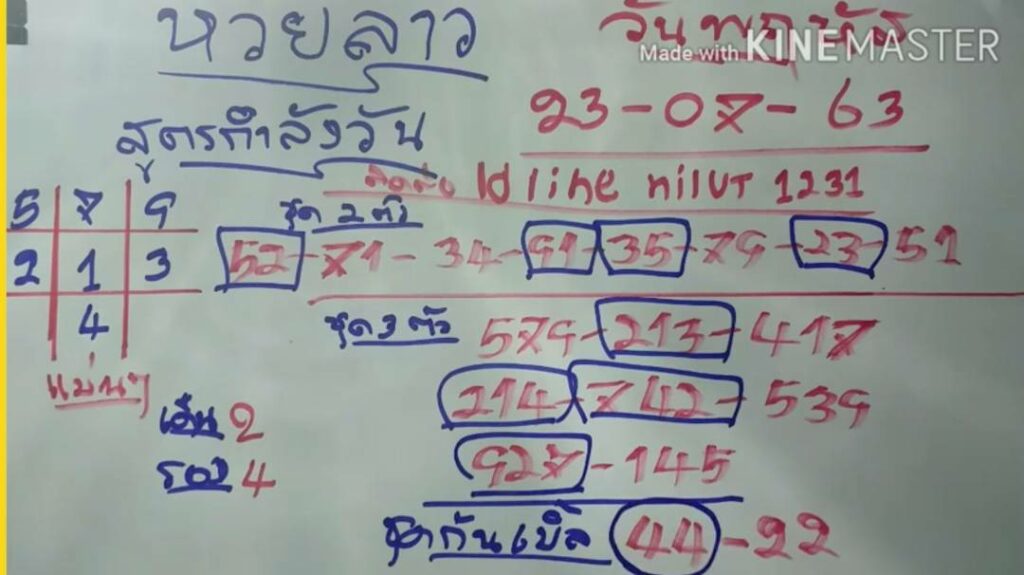 หวยลาว
วันพฤหัส
Made with KINEMASTER
23-07-63
สูตรกำลังวัน
ติดต่อ Id line nilut 1231
5 7 9
ชุด 2 ตัว
2 1 3
52-71-34-91-35-79-23-51
4
ชุด 3 ตัว 579-213-417
แม่นๆ
214-742-539
เด่น 2
รอง 4
927-145
ชุดกันเบิ้ล 44-22